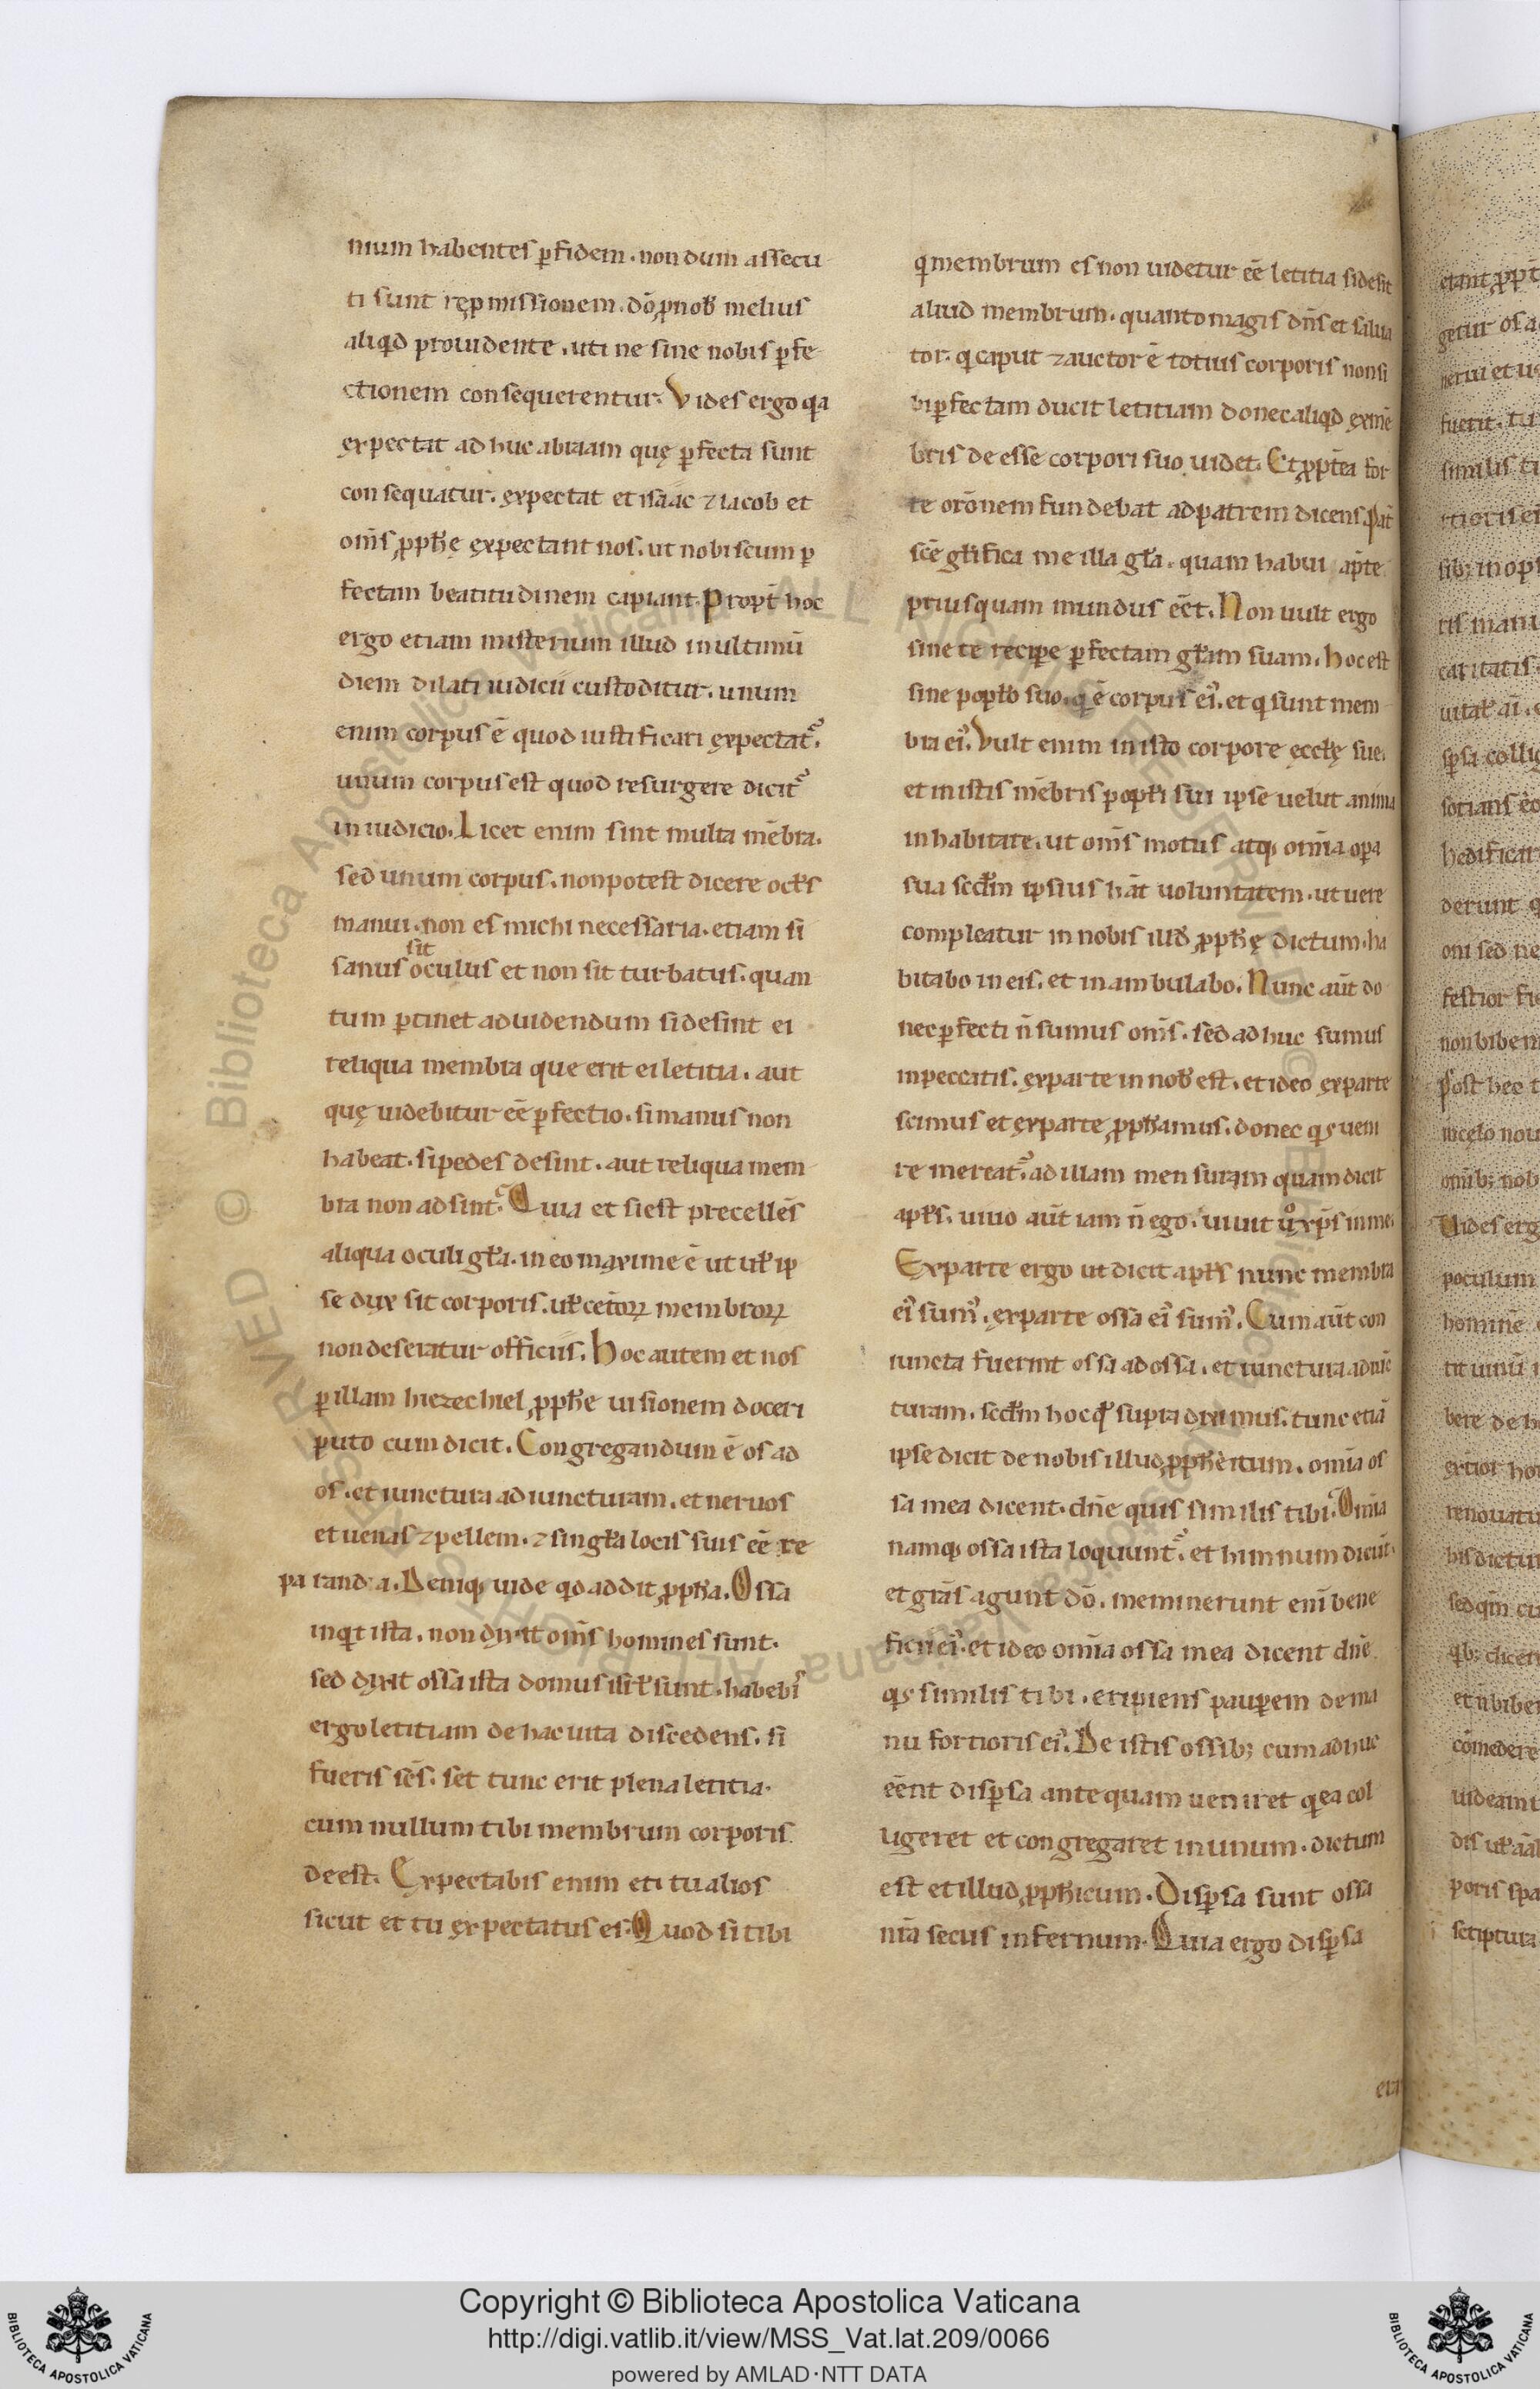 nium habentes ꝑ fidem. non dum assecu
ti sunt repmissionem. dō ꝓ nob̄ melius
aliqd prouidente. uti ne sine nobis ꝑfe
ctionem consequerentur. Vides ergo qa
ęxpectat ad huc abraam quę ꝑfecta sunt
consequatur. ęxpectat et isaac ⁊ iacob et
om̄s ꝓph̄ę ęxpectant nos. ut nobiscum ꝑ
fectam beatitudinem capiant. Propt̄ hoc
ergo etiam misterium illud in ultimū
diem dilati iudicii custoditur. unum
enim corpus ē quod iustificari ęxpectat᷑.
unum corpus est quod resurgere dicit᷑
in iudicio. Licet enim sint multa mēbra.
sed unum corpus. non potest dicere ocłs
manui. non es michi necessaria. etiam si
sit
sanus oculus et non sit turbatus. quan
tum ꝑtinet ad uidendum si desint ei
reliqua membra que erit ei letitia. aut
quę uidebitur eē ꝑfectio. si manus non
habeat. si pedes desint. aut reliqua mem
bra non adsint. Quia et si est precellēs
aliqua oculi gła. in eo maxime ē ut uł ip
se dux sit corporis. uł cetoꝝ membroꝝ
non deseratur officiis. Hoc autem et nos
ꝑ illam hiezechiel ꝓph̄e uisionem doceri
puto cum dicit. Congregandum ē os ad
os. et iunctura ad iuncturam. et neruos
et uenas ⁊ pellem. ⁊ singła locis suis eē re
paranda. Deniq; uide qd addit ꝓph̄a. Ossa
inqt ista. non dixit om̄s homines sunt.
sed dixit ossa ista domus isrł sunt. habebis
ergo letitiam de hac uita discedens. si
fueris sc̄s. set tunc erit plena letitia.
cum nullum tibi membrum corporis
deest. Expectabis enim eti tu alios
sicut et tu ęxpectatus es. Quod si tibi
q membrum es non uidetur eē letitia si desit
aliud membrum. quanto magis dn̄s et salua
tor. q caput ⁊ auctor ē totius corporis non si
bi ꝑfectam ducit letitiam donec aliqd ex mē
bris de esse corpori suo uidet. Et ꝓpt̄ea for
te orōnem fundebat ad patrem dicens. Pat̄
sc̄e głifica me illa gła. quam habui ap̄te
priusquam mundus eēt. Non uult ergo
sine te recipe ꝑfectam głam suam. hoc est
sine popło suo. q ē corpus ei᷒. et q sunt mem
bra ei᷒. Vult enim in isto corpore eccłę sue.
et in istis mēbris popłi sui ipse uelut anima
in habitare. ut om̄s motus atq; om̄ia opa
sua scdm̄ ipsius hāt uoluntatem. ut uere
compleatur in nobis illd ꝓph̄ę dictum. ha
bitabo in eis. et inambulabo. Nunc aūt do
nec ꝑfecti n̄ sumus om̄s. sed ad huc sumus
in peccatis. ęx parte in nob̄ est. et ideo ęx parte
scimus et ęx parte ꝓph̄amus. donec qs ueni
re mereat᷑ ad illam mensuram quam dicit
apłs. uiuo aūt iam n̄ ego. uiuit ů xp̄s in me.
Ex parte ergo ut dicit apłs nunc membra
ei᷒ sum᷒. ęx parte ossa ei᷒ sum᷒. Cum aūt con
iuncta fuerint ossa ad ossa. et iunctura ad iūc
turam. scdm̄ hoc qd supra diximus. tunc etiā
ipse dicit de nobis illud ꝓph̄eticum. om̄ia os
sa mea dicent. dn̄e quis similis tibi. Om̄ia
namq; ossa ista loquunt᷑. et himnum dicūt.
et grās agunt dō. meminerunt enī bene
ficii ei᷒. et ideo om̄ia ossa mea dicent dn̄e
qs similis tibi. eripiens pauꝑem de ma
nu fortioris ei᷒. De istis ossib; cum adhuc
eēnt disꝑsa antequam ueniret q ea col
ligeret et congregaret in unum. dictum
est et illud ꝓph̄icum. Disꝑsa sunt ossa
nr̄a secus infernum. Quia ergo disꝑsa
Copyright © Biblioteca Apostolica Vaticana
http://digi.vatlib.it/view/MSS_Vat.lat.209/0066
powered by AMLAD·NTT DATA
BIBLIOTECA APOSTOLICA VATICANA
BIBLIOTECA APOSTOLICA VATICANA